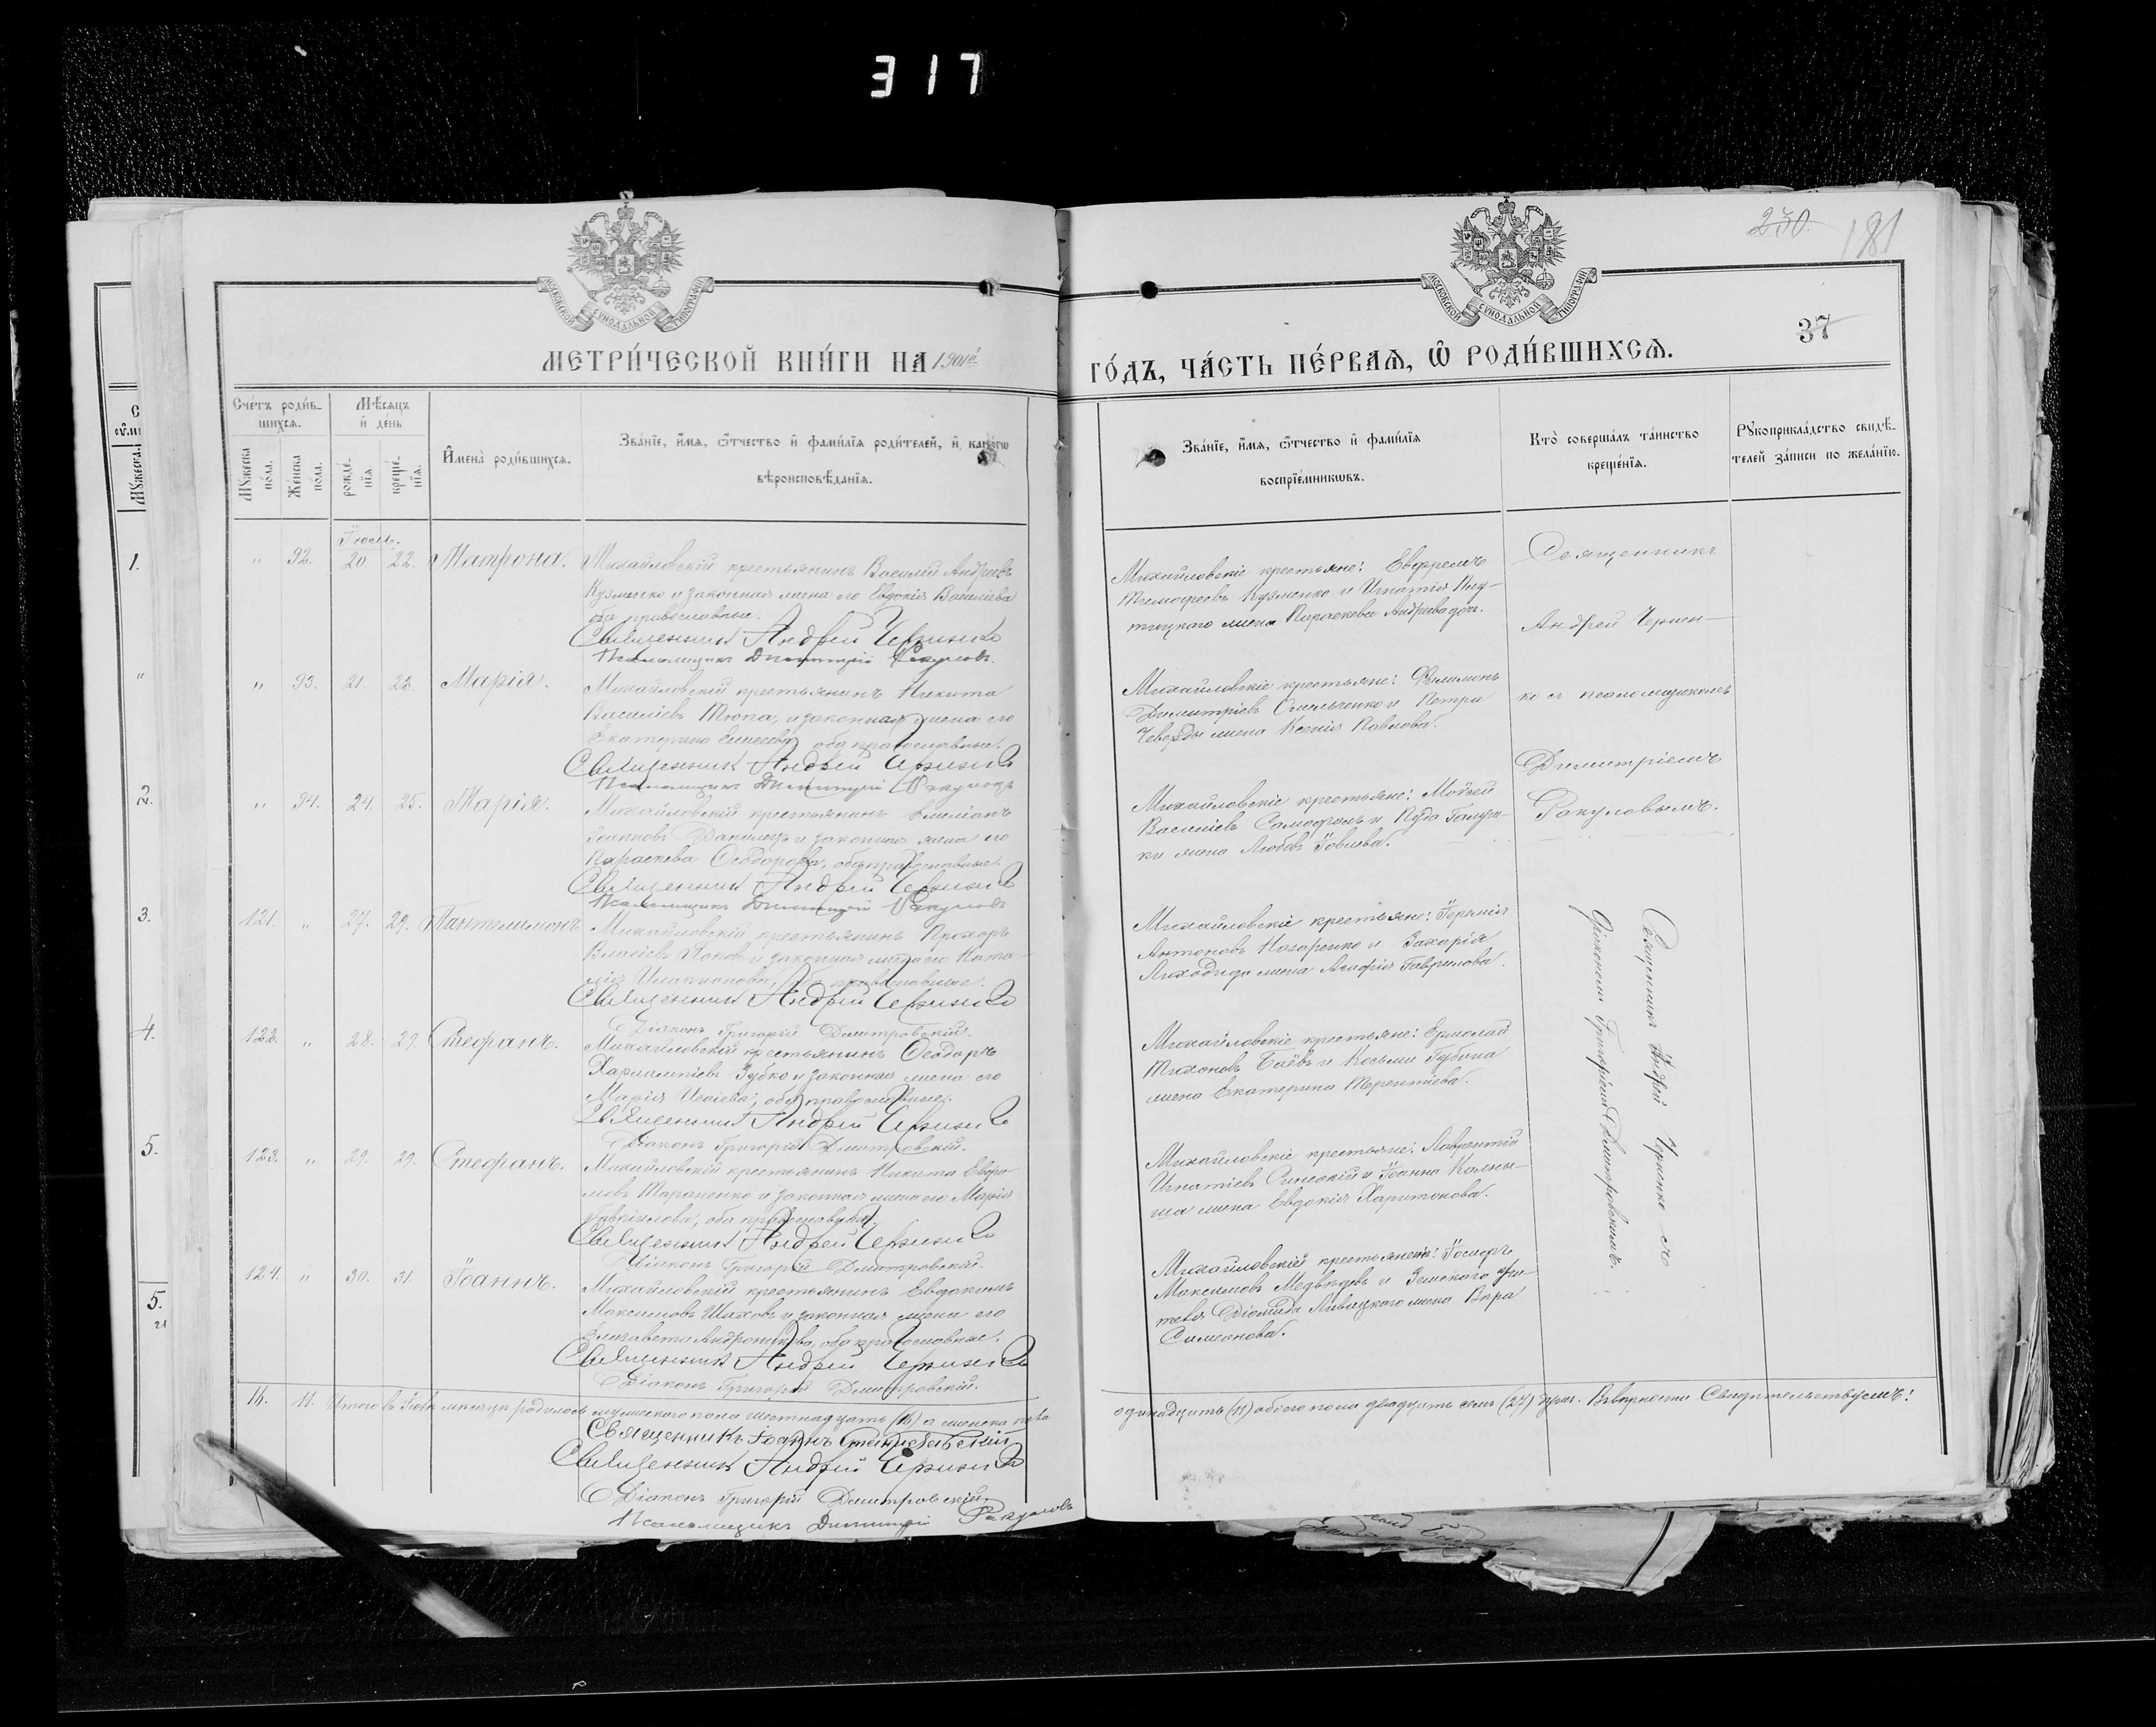 317
230.
181
37
МЕТРИ́ЧЕСКОЙ КНИ́ГИ НА 1901й
ГО́ДЪ, ЧА́СТЬ ПЕ́РВАѦ, Ѡ РОДИ́ВШИХСѦ.
Сче́тъ роди́в-
шихсѧ.
Мꙋ́жеска по́ла.
Же́нска по́ла.
Мѣ́сѧцъ и҆ де́нь
рожде́-нїѧ
креще́-нїѧ.
И҆мена̀ роди́вшихсѧ.
Зва́нїе, и҆́мѧ, ѻ҆́тчество и҆ фами́лїѧ роди́телей, и҆ како́гѡ
вѣроисповѣ́данїѧ.
Зва́нїе, и҆́мѧ, ѻ҆́тчество и҆ фами́лїѧ
воспрїе́мникѡвъ.
Кто̀ соверша́лъ та́инство
креще́нїѧ.
Рꙋкоприкла́дство свидѣ́-
телей за́писи по жела́нїю.
Іюль.
" 92. 20. 22. Матрона. Михайловскій крестьянинъ Василій Андреевъ
Кузменко и законная жена его Евдокія Василіева
оба православные.
Священникъ Андрей Черненко
Псаломщикъ Димитрій Ракуловъ.
Михайловскіе крестьяне: Евфремъ
Тимофеевъ Кузменко и Игнатія
жена Параскева Андреева
" 93. 21. 22. Марія. Михайловскій крестьянинъ Никита
Василіевъ Тюпа, и законная жена его
Екатерина Елисеева, оба православные.
Священникъ Андрей Черненко
Псаломщикъ Димитрій Ракуловъ
Михайловскіе крестьяне: Филимонъ
Димитріевъ Омельченко и Петра
жена Ксенія Павлова.
" 94. 24. 25. Марія. Михайловскій крестьянинъ Емеліанъ
Іоанновъ Данилецъ и законная жена его
Параскева Ѳеодорова, оба православные.
Священникъ Андрей Черненко
Псаломщикъ Димитрій Ракуловъ
Михайловскіе крестьяне: Мойсей
Василіевъ и
жена Любовь Іовлева.
Священникъ
Андрей Чернен-
ко съ псаломщикомъ
Димитріемъ
Ракуловымъ.
121. " 27. 29. Пантелимонъ Михайловскій крестьянинъ Прохоръ
Власіевъ Поповъ и законная жена его Ната-
лія оба православные.
Священникъ Андрей Черненко
Діаконъ Григорій Дмитровскій.
Михайловскіе крестьяне: Іеремія
Антоновъ Назаренко и Захарія
Лиходида жена Агафія Гаврилова.
122. " 28. 29. Стефанъ. Михайловскій крестьянинъ Ѳеодоръ
Харлампіевъ Зубко и законная жена его
Марія Исаіева, оба православные.
Священникъ Андрей Черненко
Діаконъ Григорій Дмитровскій.
Михайловскіе крестьяне: Ермолай
Тихоновъ Баёвъ и Косьмы Губина
жена Екатерина Терентіева.
123. " 29. 29. Стефанъ. Михайловскій крестьянинъ Никита Евфре-
мовъ Тараненко и законная жена его Марія
Гавріилова, оба православные.
Священникъ Андрей Черненко
Діаконъ Григорій Дмитровскій.
Михайловскіе крестьяне: Лаврентій
Игнатіевъ Синѣокій и Іоанна Калны-
ша жена Евдокія Харитонова.
124. " 30. 31. Іоаннъ. Михайловскій крестьянинъ Евдокимъ
Максимовъ Шаховъ и законная жена его
Елизавета Андроникова, оба православные.
Священникъ Андрей Черненко
Діаконъ Григорій Дмитровскій.
Михайловскій крестьянинъ: Іосифъ
Максимовъ Медвѣдевъ и Земскаго учи-
теля Діомида Ливицкаго жена Вѣра
Симеонова.
Священникъ Андрей Черненко съ
Діакономъ Григоріемъ Дмитровскимъ.
16. 11. Итого въ Іюлѣ мѣсяцѣ родилось мужескаго пола шестнадцать (16) а женска пола
одинадцать (11) обоего пола двадцать семь (27) душъ. Въ вѣрности Свидѣтельствуемъ:
Священникъ Іоаннъ
Священникъ Андрей Черненко
Діаконъ Григорій Дмитровскій
Псаломщикъ Димитрій Ракуловъ
1.
"
2.
3.
4.
5.
5.
21